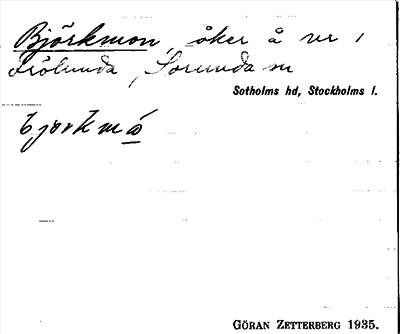 Björkmon, åker å nr 1
Frölunda, Sorunda sn
Sotholms hd, Stockholms l.
bjorkmå
GÖRAN ZETTERBERG 1935.